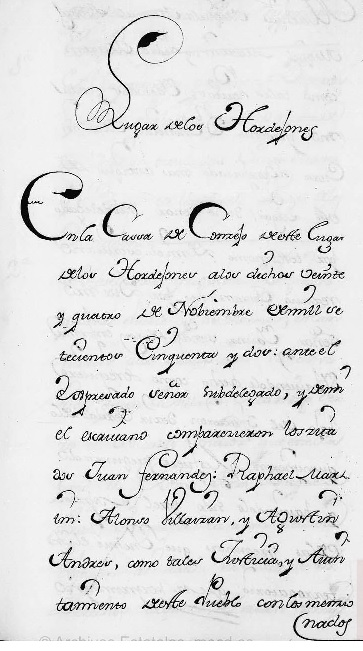 Lugar de los Hordejones
En la Cassa de Conzejo de este Lugar
de los Hordejones a los dichos veinte
y quatro de Noviembre de mill se
tecientos Cinquenta y dos: ante el
Expresado señor subdelegado, y de mi
el escriuano comparecieron los zita
dos Juan fernandez: Raphael Mar
tin: Alonso Villarzan, y Agustin
Andres, como tales Justicia, y Aiun
tamiento de este Pueblo con los menzio
nados